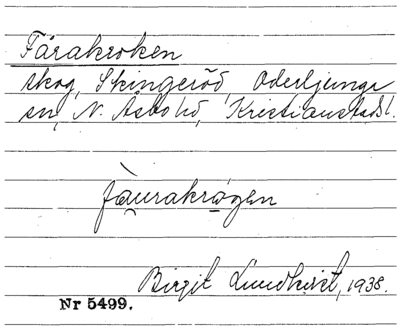 Fårakroken
skog, Skingeröd, Oderljunga
sn, N. Åsbo hd, Kristianstads l.
fàurakrǫgen
Birgit Lundkvist, 1938.
Nr 5499.